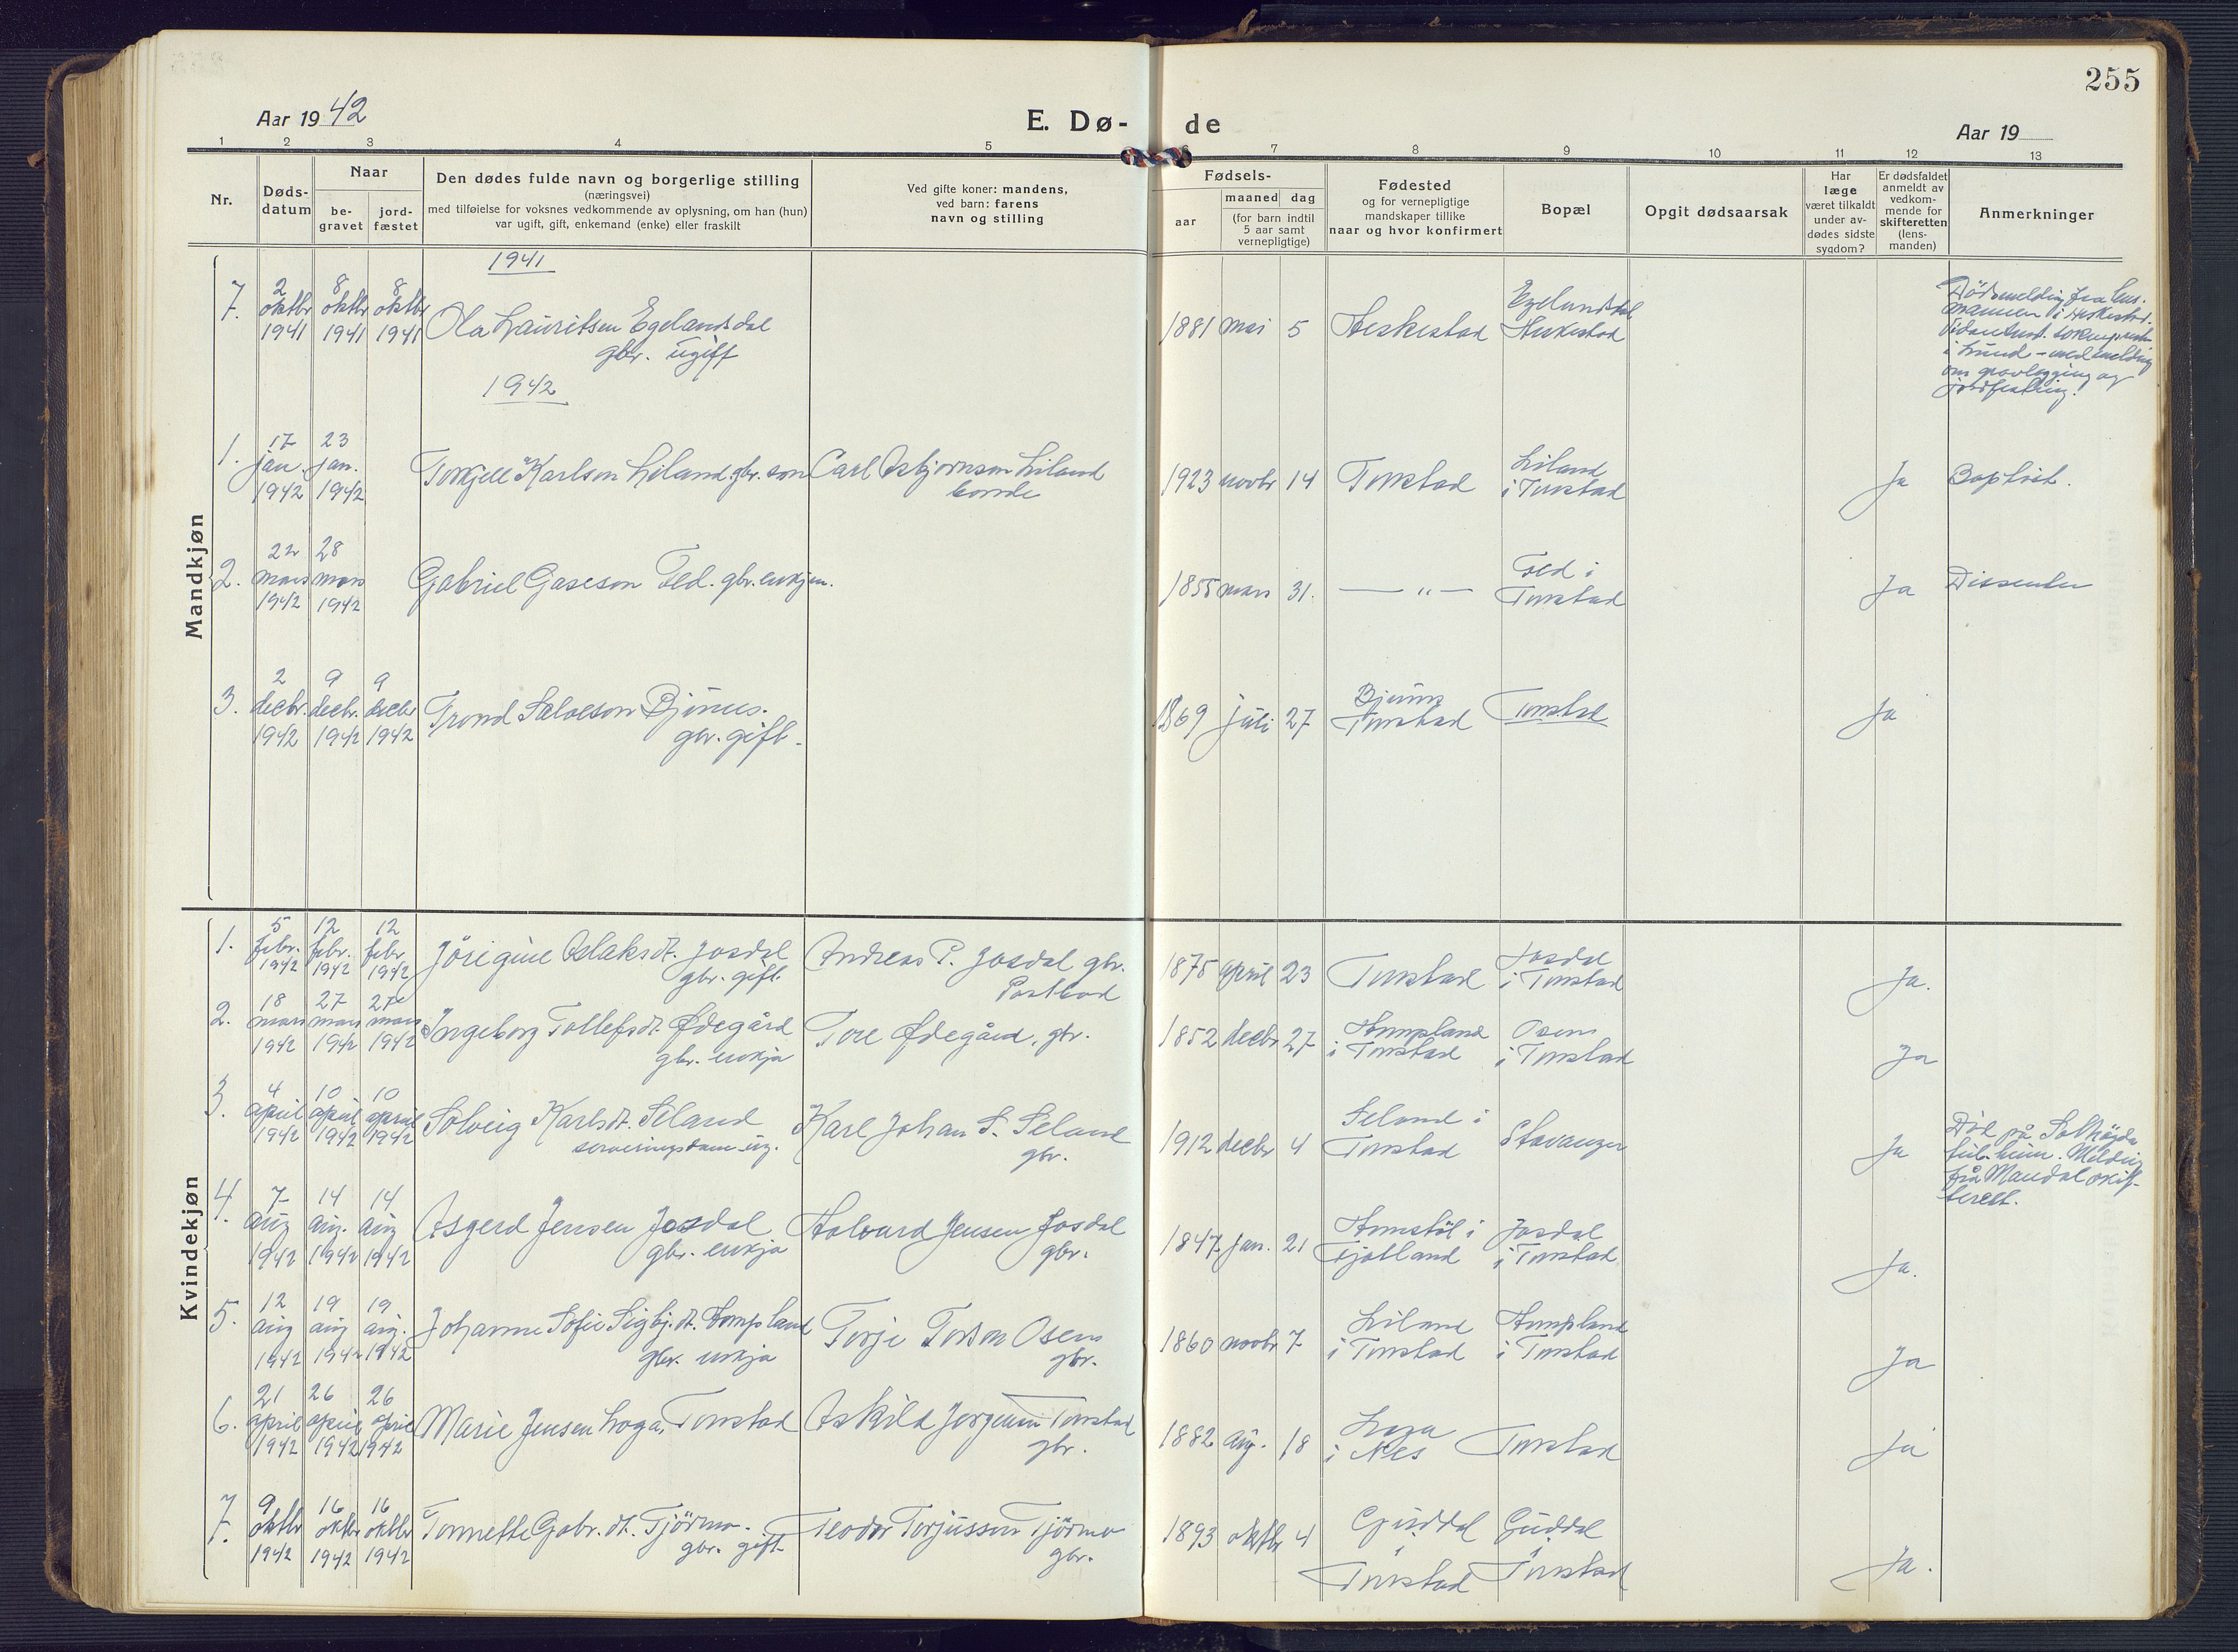 255
Aar 1942
E. Dø- de
Aar 19
1 2 3 4 5 6 7 8 9 10 11 12 13
Nr.
Døds-
datum
Naar
be-
gravet
jord-
fæstet
Den dødes fulde navn og borgerlige stilling
(næringsvei)
med tilføielse for voksnes vedkommende av oplysning, om han (hun)
var ugift, gift, enkemand (enke) eller fraskilt
Ved gifte koner: mandens,
ved barn: farens
navn og stilling
Fødsels-
aar
maaned dag
(for barn indtil
5 aar samt
vernepligtige)
Fødested
og for vernepligtige
mandskaper tillike
naar og hvor konfirmert
Bopæl
Opgit dødsaarsak
Har
læge
været tilkaldt
under av-
dødes sidste
sygdom?
Er dødsfaldet
anmeldt av
vedkom-
mende for
skifteretten
(lens-
manden)
Anmerkninger
Mandkjøn
1941
7. 2 oktbr 1941 8 oktbr 1941 8 oktbr 1941 Ola Lauritsen Egelandsdal
gbr. ugift
1881 mai 5 Heskestad Egelandsdal
Heskestad
Dødsmelding fra lens-
mannen i Heskestad.
i Lund - med melding
om gravlegging og
jordfesting.
1942
1. 17 jan. 1942 23 jan. 1942 Torkjell Karlson Liland gbr. son Carl Asbjørnson Liland
bonde
1923 novbr 14 Tonstad Liland
i Tonstad Ja Baptist.
2. 22 mars 1942 28 mars 1942 Gabriel Gaseson Fed. gbr. enkjem.
1855 mars 31. — " — Fed i
Tonstad Ja Dissenter
3. 2 decbr. 1942 9 decbr. 1942 9 decbr 1942 Trond Salveson Bjūnes.
gbr. gift.
1869 juli 27 Bjunes
Tonstad Tonstad Ja
Kvindekjøn
1. 5 febr. 1942 12 febr. 1942 12 febr 1942 Jörigine Aslaksdt. Josdal
gbr. gift. Andreas P. Josdal gbr.
Postbud
1875 april 23 Tonstad Josdal
i Tonstad Ja.
2. 18 mars 1942 27 mars 1942 27 mars 1942 Ingeborg Tollefsdt. Ødegård
gbr. enkja Tore Ødegård. gbr.
1852 decbr 27 Humpland
i Tonstad Osen
i Tonstad Ja
3. 4 april 1942 10 april 1942 10 april 1942 Solveig Karlsdt. Seland
serveringsdame ug. Karl Johan S. Seland
gbr.
1912 decbr 4 Seland i
Tonstad Stavanger Ja Död på Solhögda
kvileheim. Melding
frå Mandal skift-
terett.
4. 7 aug 1942 14 aug. 1942 14 aug 1942 Asgerd Jensen Josdal
gbr. enkja Halvard Jensen Josdal
gbr.
1847 jan. 21 i
Fjotland Josdal
i Tonstad Ja.
5. 12 aug 1942 19 aug 1942 19 aug. 1942 Johanne Sofie Sigbj.dt. Hompland
gbr. enkja Torje Torson Osen
gbr.
1860 novbr 7 Liland
i Tonstad Humpland
i Tonstad Ja
6. 21 april 1942 26 april 1942 26 april 1942 Marie Jensen Loga, Tonstad Askild Jørgensen Tonstad
gbr.
1882 aug. 18 Loga
i Nes Tonstad Ja
7. 9 oktbr 1942 16 oktbr 1942 16 oktbr 1942 Tonnette Gabr. dt. Tjörmo.
gbr. gift. Teodor Torjussen Tjörmo
gbr.
1893 oktbr 4 Guddal
i
Tonstad Guddal
i
Tonstad Ja.